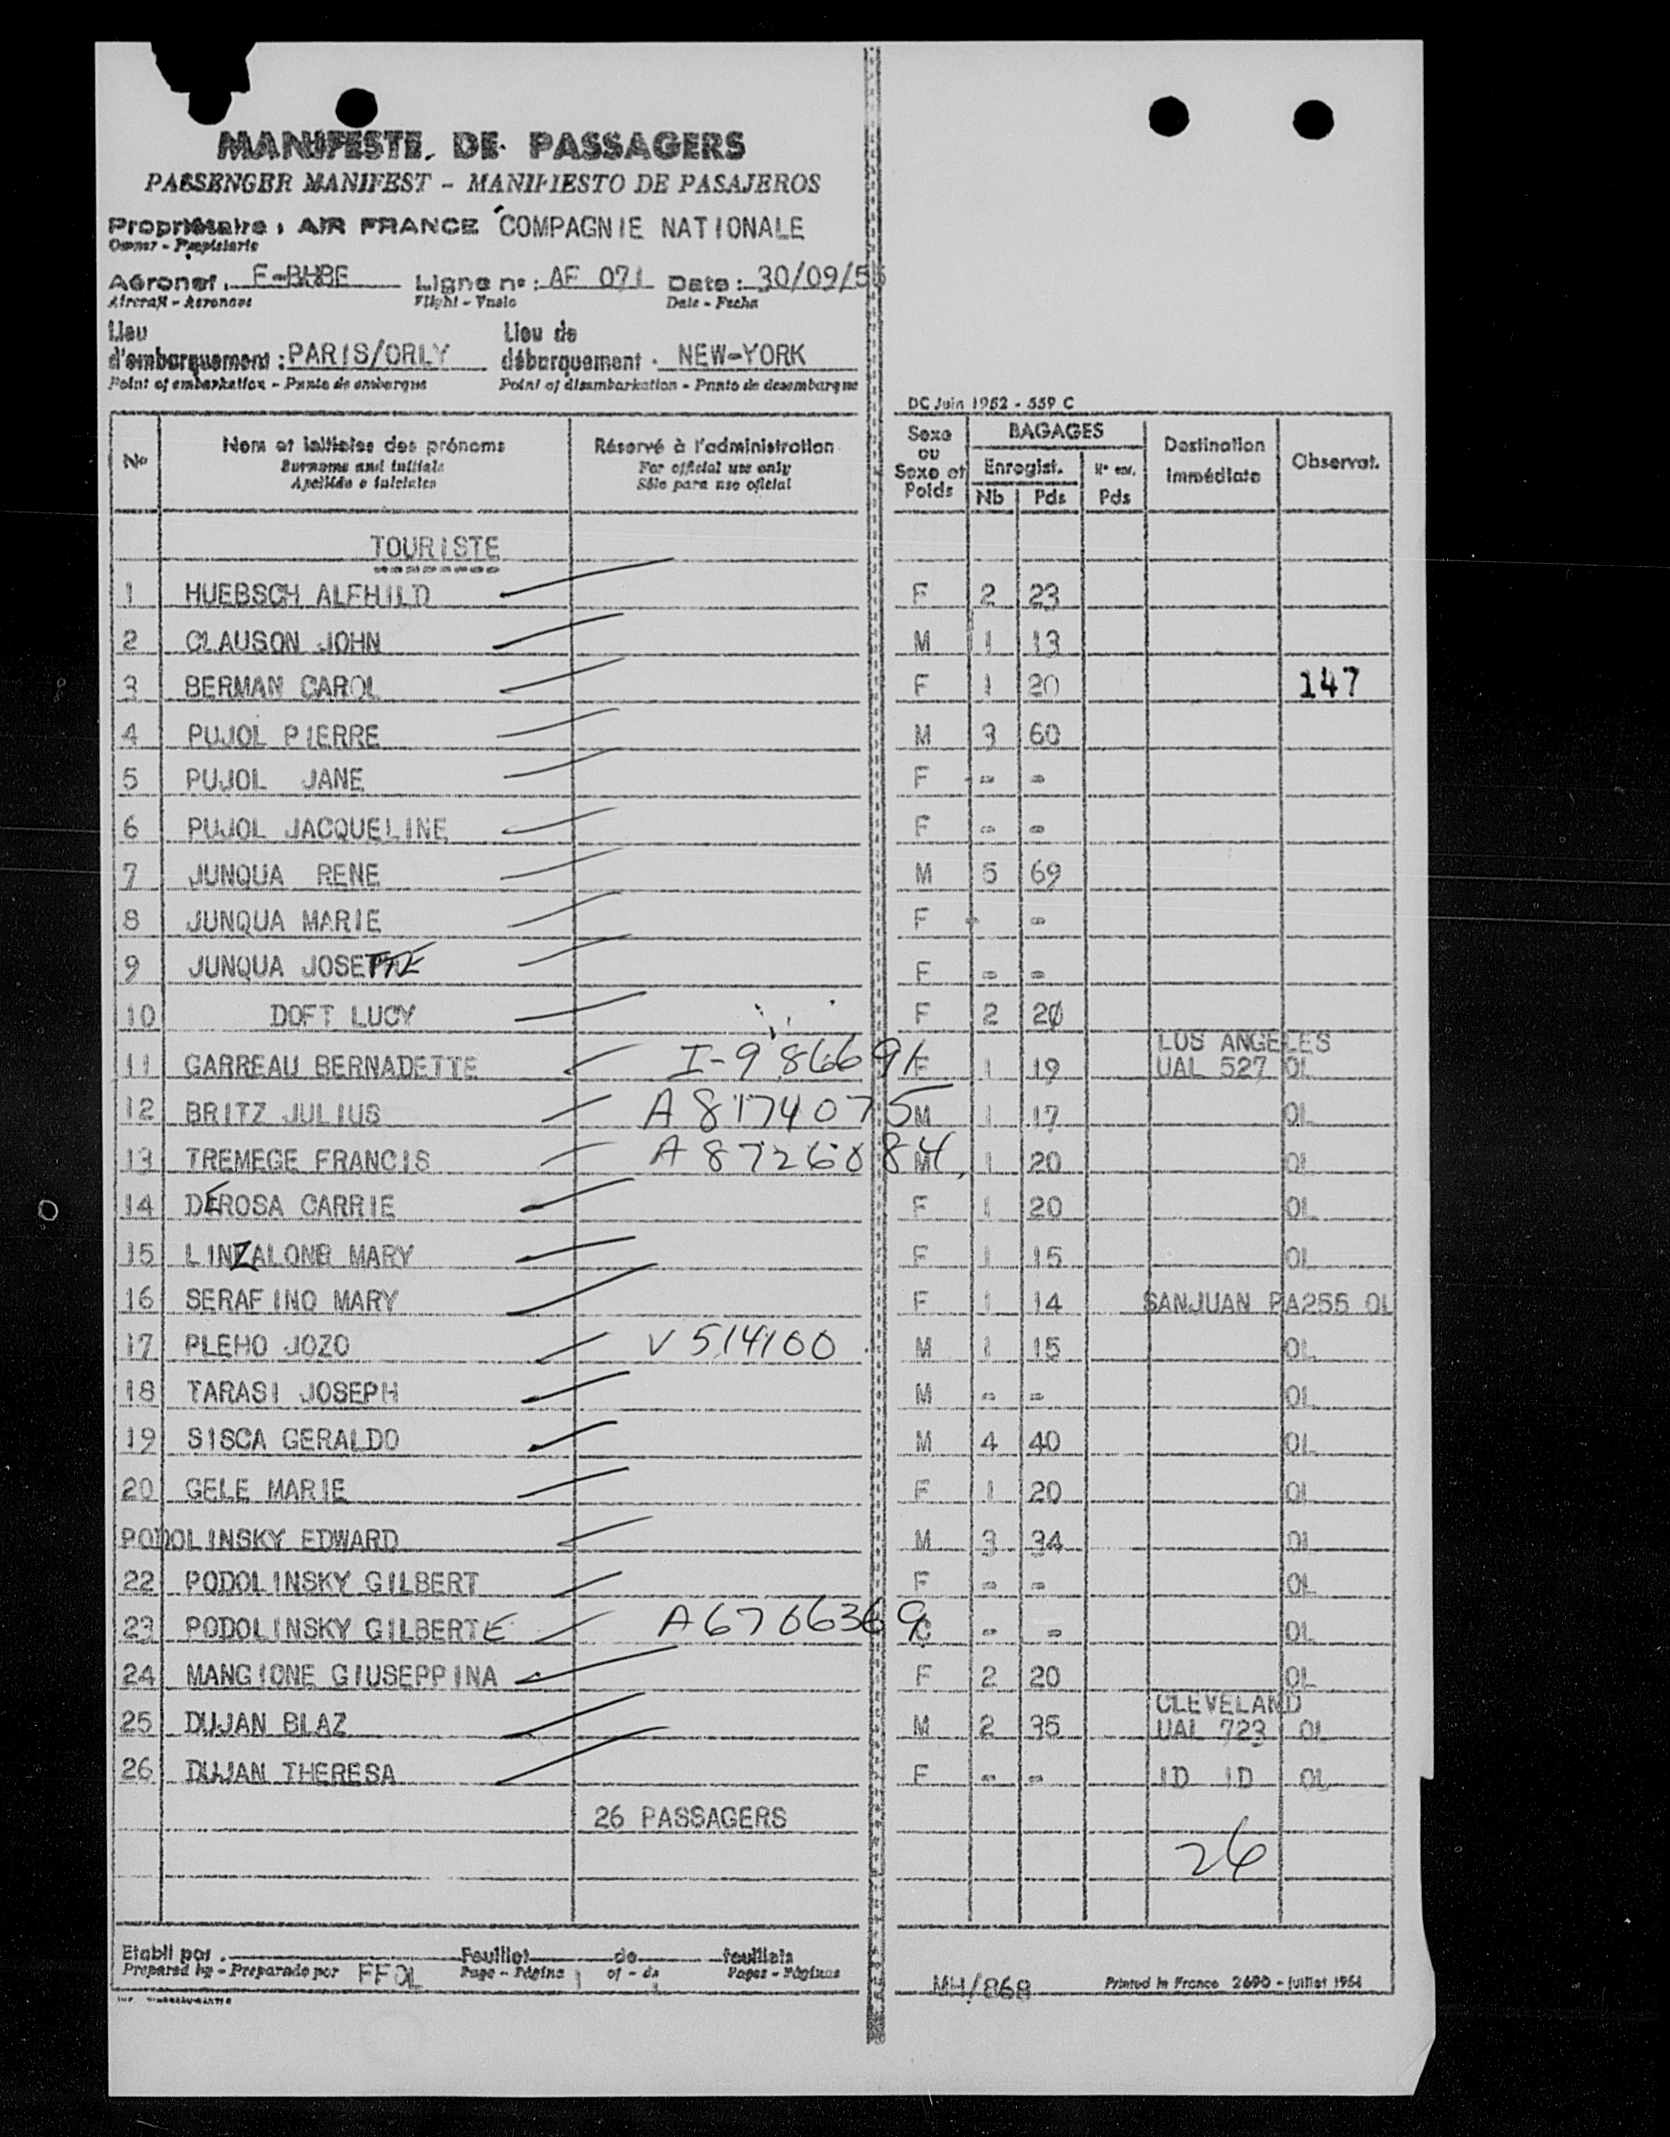 MANIFESTE DE PASSAGERS
PASSENGER MANIFEST - MANIFIESTO DE PASAJEROS
Propriétaire : AIR FRANCE COMPAGNIE NATIONALE
Owner - Propietario
Aéronef : F-BHBE Ligne n° : AF 071 Date : 30/09/55
Aircraft - Aeronave Flight - Vuelo Date - Fecha
Lieu Lieu de
d'embarquement : PARIS/ORLY débarquement : NEW-YORK
Point of embarkation - Punto de embarque Point of disembarkation - Punto de desembarque
DC Juin 1952 - 559 C
No Nom et initiales des prénoms Réservé à l'administration Sexe ou Sexe et Poids BAGAGES Destination immédiate Observat.
Surname and initials For official use only Enregist. N° enr.
Apellido e iniciales Sólo para uso oficial Nb Pds Pds
TOURISTE
1 HUEBSCH ALFHILD F 2 23
2 CLAUSON JOHN M 1 13
3 BERMAN CAROL F 1 20 147
4 PUJOL PIERRE M 3 60
5 PUJOL JANE F - -
6 PUJOL JACQUELINE F - -
7 JUNQUA RENE M 5 69
8 JUNQUA MARIE F - -
9 JUNQUA JOSETTE F - -
10 DOFT LUCY F 2 20
LOS ANGELES
11 GARREAU BERNADETTE I-986691 F 1 19 UAL 527 OL
12 BRITZ JULIUS A8174075 M 1 17 OL
13 TREMEGE FRANCIS A8726084 M 1 20 OL
14 DEROSA CARRIE F 1 20 OL
15 LINZALONE MARY F 1 15 OL
16 SERAFINO MARY F 1 14 SANJUAN PA255 OL
17 PLEHO JOZO V514100 M 1 15 OL
18 TARASI JOSEPH M - - OL
19 SISCA GERALDO M 4 40 OL
20 GELE MARIE F 1 20 OL
PODOLINSKY EDWARD M 3 34 OL
22 PODOLINSKY GILBERT F - - OL
23 PODOLINSKY GILBERTE A6706369 - - OL
24 MANGIONE GIUSEPPINA F 2 20 OL
CLEVELAND
25 DUJAN BLAZ M 2 35 UAL 723 OL
26 DUJAN THERESA F - - ID ID OL
26 PASSAGERS
26
Etabli par Feuillet de feuillets
Prepared by - Preparado por FFOL Page - Página 1 of - de 1 Pages - Páginas
MH/868 Printed in France 2690 - juillet 1954